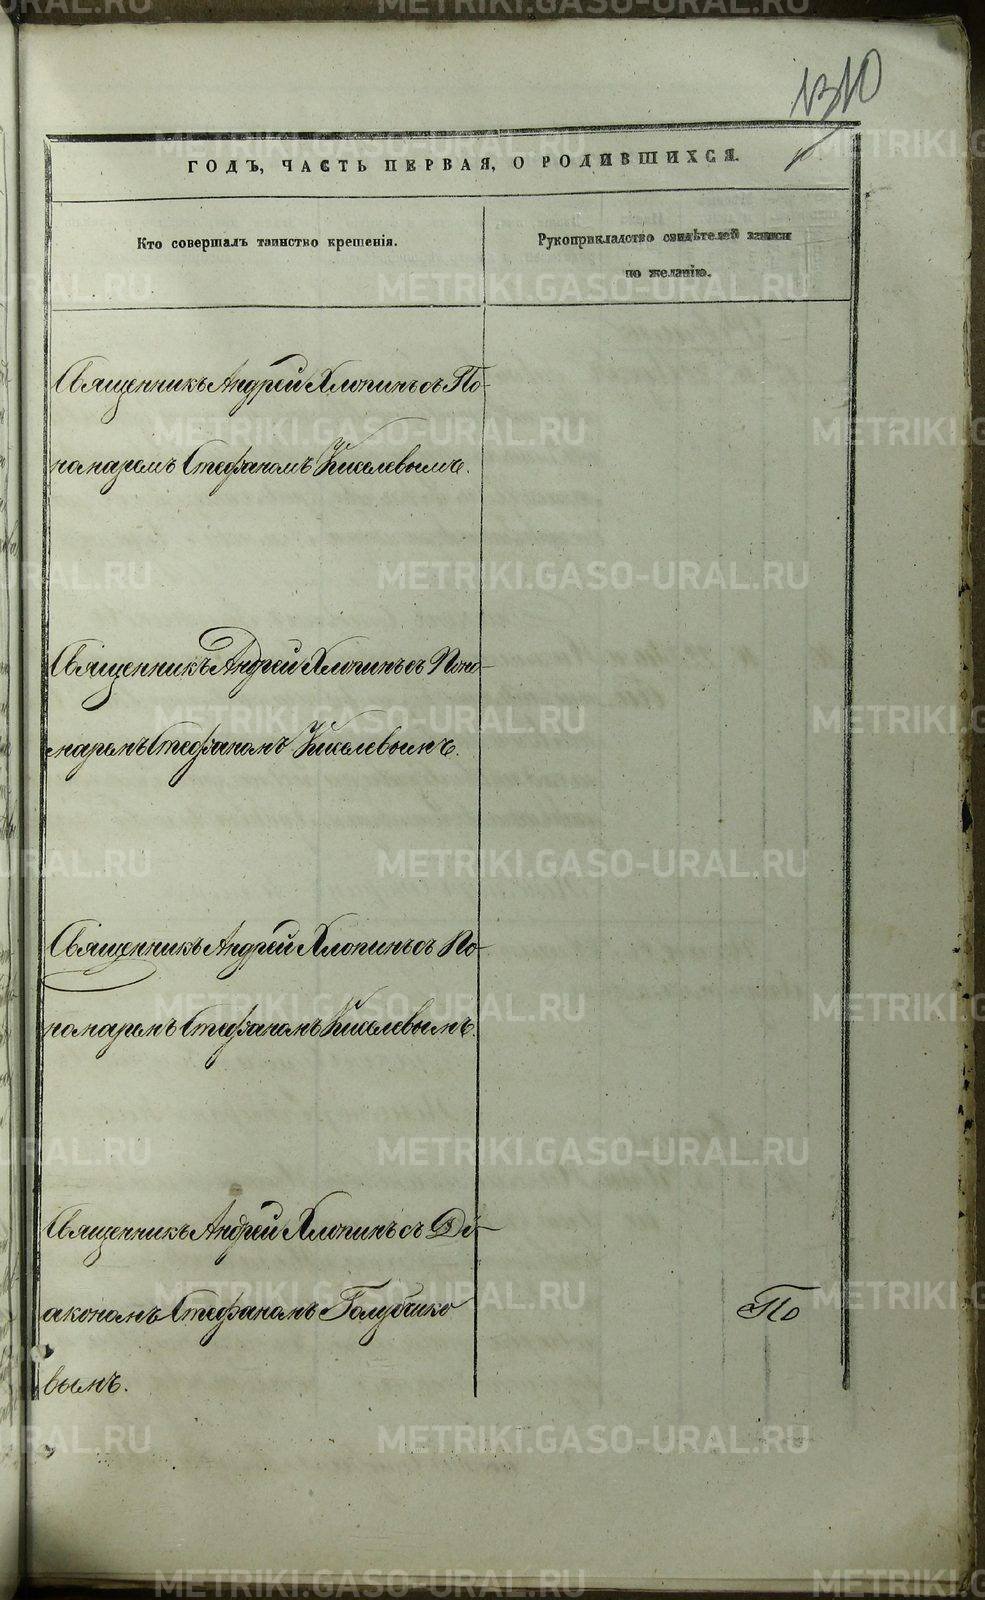 1310
ГОДЪ, ЧАСТЬ ПЕРВАЯ, О РОДИВШИХСЯ.
Кто совершалъ таинство крещенія.
Рукоприкладство свидѣтелей записи
по желанію.
Священникъ Андрей Хлопинъ съ По-
номаремъ Стефаномъ Киселевымъ.
Священникъ Андрей Хлопинъ съ Поно-
маремъ Стефаномъ Киселевымъ.
Священникъ Андрей Хлопинъ съ По-
номаремъ Стефаномъ Киселевымъ.
Священникъ Андрей Хлопинъ съ Ді-
акономъ Стефаномъ Голубчико
вымъ.
По
METRIKI.GASO-URAL.RU